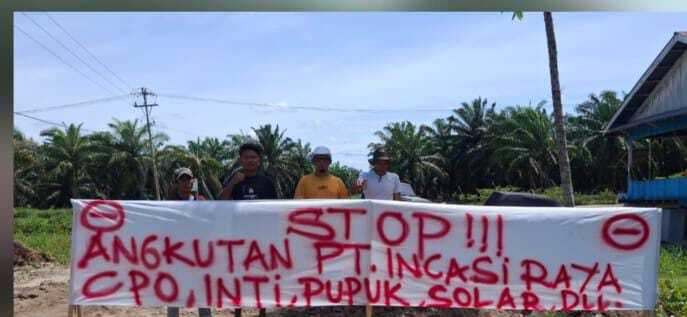 STOP!!!
ANGKUTAN PT. INCASI RAYA
CPO, INTI, PUPUK, SOLAR, DLL.